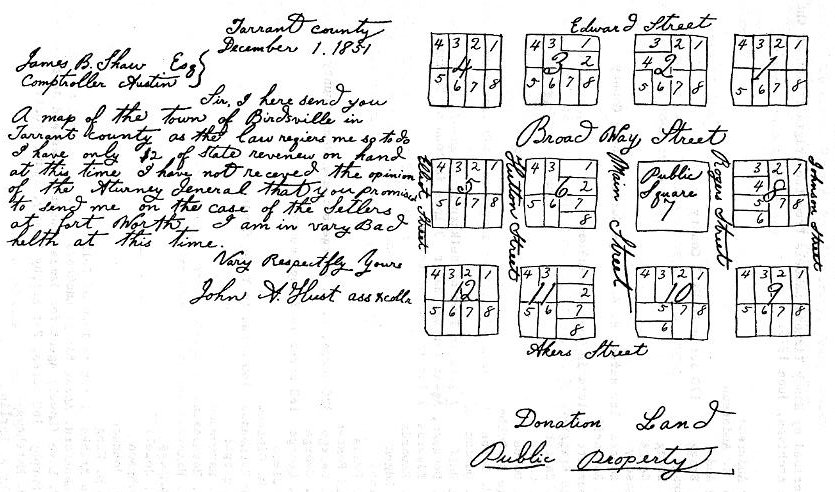 Tarrant county
December 1. 1851
James B. Shaw Esq
Comptroller Austin
Sir, I here send you
A map of the town of Birdsville in
Tarrant county as the law regiers me so to do
I have only $2 of state revenew on hand
at this time I have not receved the opinion
of the Aturney General that you promised
to send me on the case of the Setlers
at fort Worth I am in vary Bad
helth at this time.
Vary Respectfly Yours
John A. Hust ass & collr
Edward Street
4 3 2 1
4
5 6 7 8
4 3 1
3 2
5 6 7 8
3 2 1
4 2
5 6 7 8
4 3 2 1
1
5 6 7 8
Broad Way Street
Elliot Street
4 3 2 1
5
5 6 7 8
Hutton Street
4 3 1
6 2
5 6 7
8
Main Street
Public
Square
7
Rogers Street
3 2 1
4 8
5 7 8
6
Johnson Street
4 3 2 1
12
5 6 7 8
4 3 1
11 2
5 6 7
8
4 3 2 1
10
5 7 8
6
4 3 2 1
9
5 6 7 8
Akers Street
Donation Land
Public Property